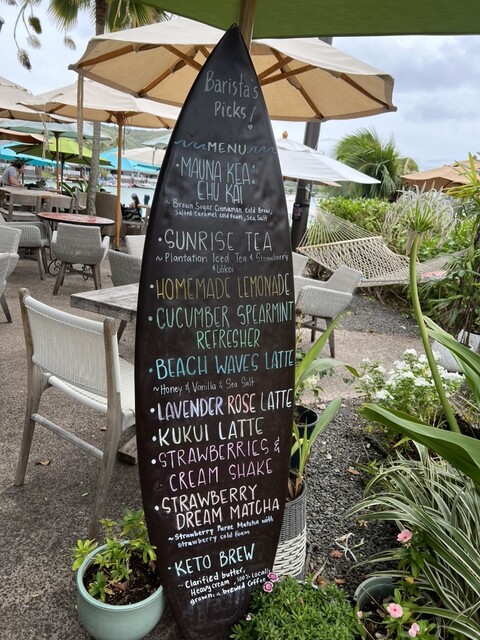 Barista's
Picks!
MENU
• MAUNA KEA
CHU KAI
~ Brown Sugar Cinnamon Cold Brew,
Salted Caramel cold foam, Sea Salt
• SUNRISE TEA
~ Plantation Iced Tea & Strawberry
lilikoi
• HOMEMADE LEMONADE
• CUCUMBER SPEARMINT
REFRESHER
• BEACH WAVES LATTE
~ Honey & Vanilla & Sea Salt
• LAVENDER ROSE LATTE
• KUKUI LATTE
• STRAWBERRIES &
CREAM SHAKE
• STRAWBERRY
DREAM MATCHA
~ Strawberry Puree Matcha with
strawberry cold foam
• KETO BREW
~ Clarified butter,
Heavy cream & 100% locally
grown, & brewed Coffee